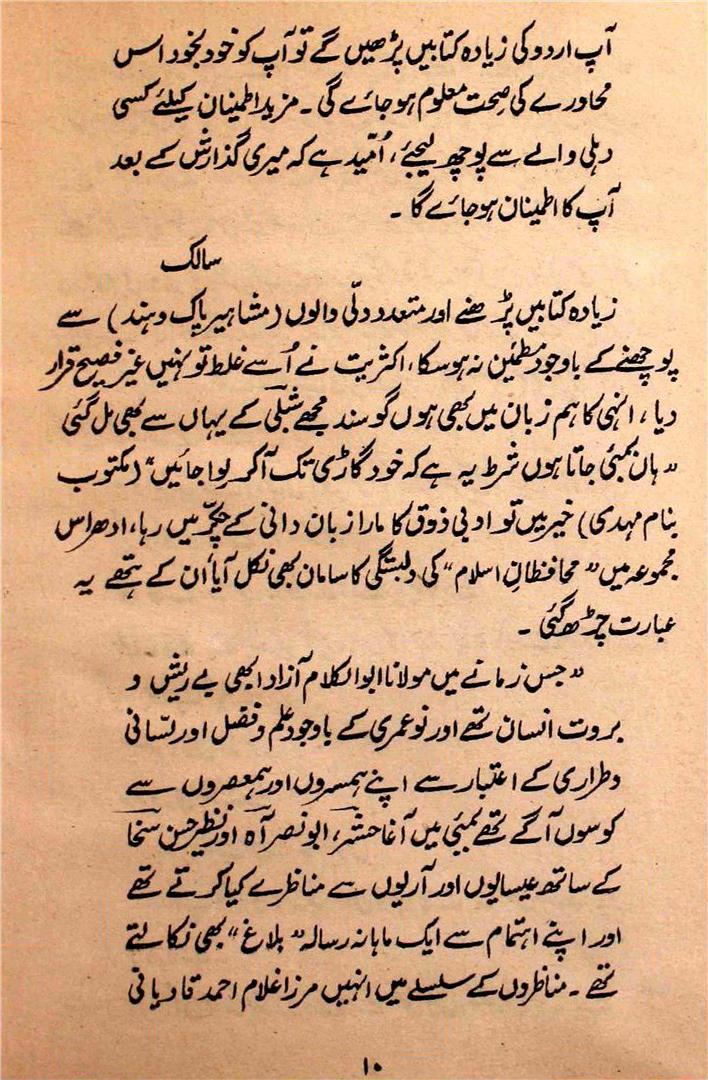 آپ اردو کی زیادہ کتابیں پڑھیں گے تو آپ کو خود بخود اس
محاورے کی صحت معلوم ہو جائے گی ۔ مزید اطمینان کیلئے کسی
دہلی والے سے پوچھ لیجئے ، اُمّید ہے کہ میری گذارش کے بعد
آپ کا اطمینان ہو جائے گا ۔
سالک
زیادہ کتابیں پڑھنے اور متعدد دلّی والوں (مشاہیر پاک و ہند) سے
پوچھنے کے باوجود مطمئین نہ ہو سکا ، اکثریت نے اُسے غلط تو نہیں غیر فصیح قرار
دیا ، انہی کا ہم زبان میں بھی ہوں گو سند مجھے شبلی کے یہاں سے بھی مل گئی
”ہاں بمبئی جاتا ہوں شرط یہ ہے کہ خود گاڑی تک آ کر لوا جائیں“ (مکتوب
بنام مہدی) خیر میں تو ادبی ذوق کا مارا زبان دانی کے چکّر میں رہا ، ادھر اس
مجموعہ میں ”محافظانِ اسلام“ کی دلبستگی کا سامان بھی نکل آیا اُن کے ہتھے یہ
عبارت چڑھ گئی ۔
”جس زمانے میں مولانا ابوالکلام آزاد ابھی بے ریش و
بروت انسان تھے اور نو عمری کے باوجود علم و فضل اور لسّانی
و طراری کے اعتبار سے اپنے ہمسروں اور ہمعصروں سے
کوسوں آگے تھے بمبئی میں آغا حشر ، ابو نصر آہ اور نظیر حسن سخا
کے ساتھ عیسایوں اور آریوں سے مناظرے کیا کرتے تھے
اور اپنے اہتمام سے ایک ماہانہ رسالہ ”بلاغ“ بھی نکالتے
تھے ۔ مناظروں کے سلسلے میں انہیں مرزا غلام احمد قادیانی
۱۰